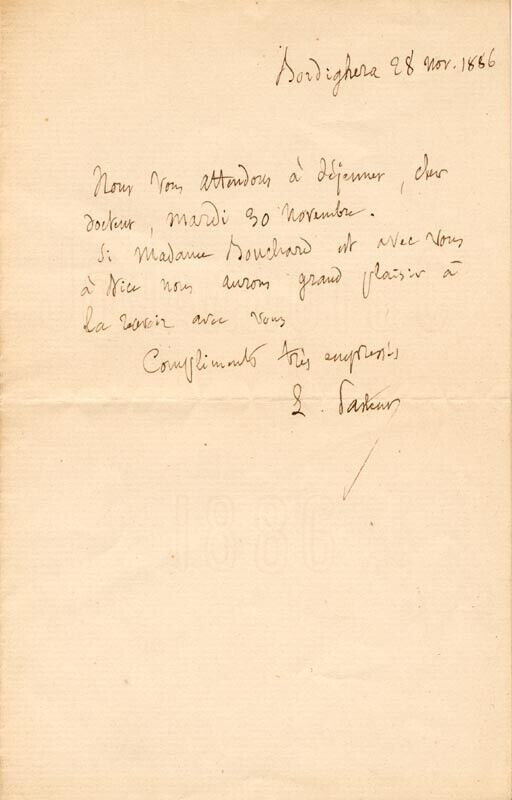 Bordighera 28 nov. 1886
Nous vous attendons à déjeuner, cher
docteur, mardi 30 novembre.
Si Madame Bouchard est avec vous
à Nice nous aurons grand plaisir à
la revoir avec vous
Compliments très empressés
L. Pasteur
1886